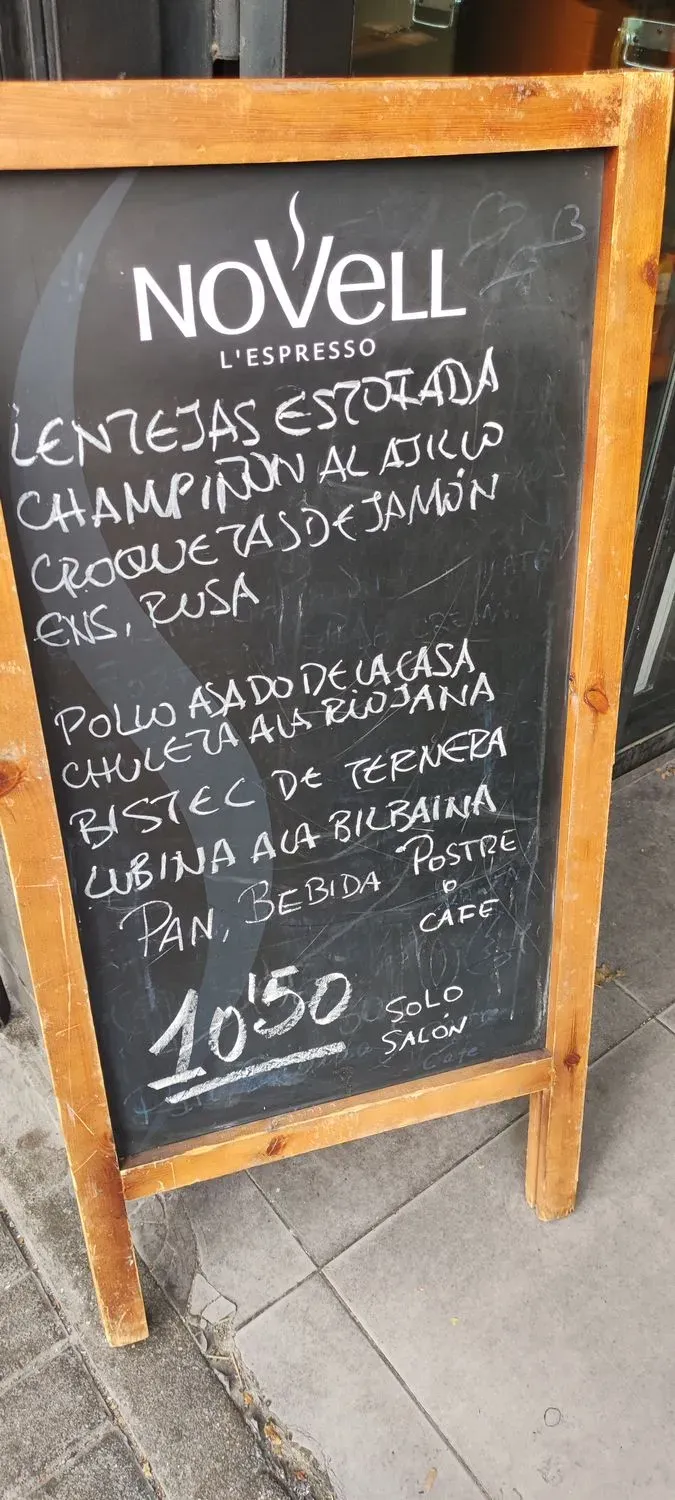 NOVELL
L'ESPRESSO
LENTEJAS ESTOFADA
CHAMPIÑON AL AJILLO
CROQUETAS DE JAMÓN
ENS, RUSA
POLLO ASADO DE LA CASA
CHULETA A LA RIOJANA
BISTEC DE TERNERA
LUBINA A LA BILBAINA
PAN, BEBIDA POSTRE
O
CAFE
10'50
SOLO
SALÓN